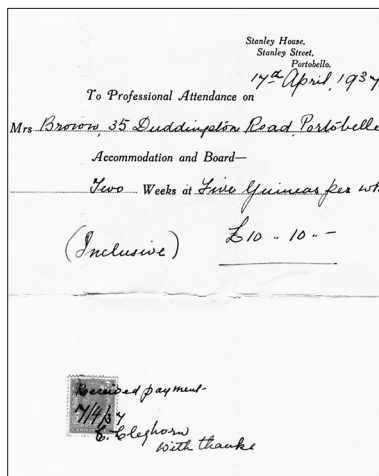 Stanley House,
Stanley Street,
Portobello.
17th April, 1937
To Professional Attendance on
Mrs Brown, 35 Duddingston Road, Portobello
Accommodation and Board—
Two Weeks at Five Guineas per wk
(Inclusive) £10 .. 10 .. -
Received payment-
7/4/37
E. Cleghorn
with thanks